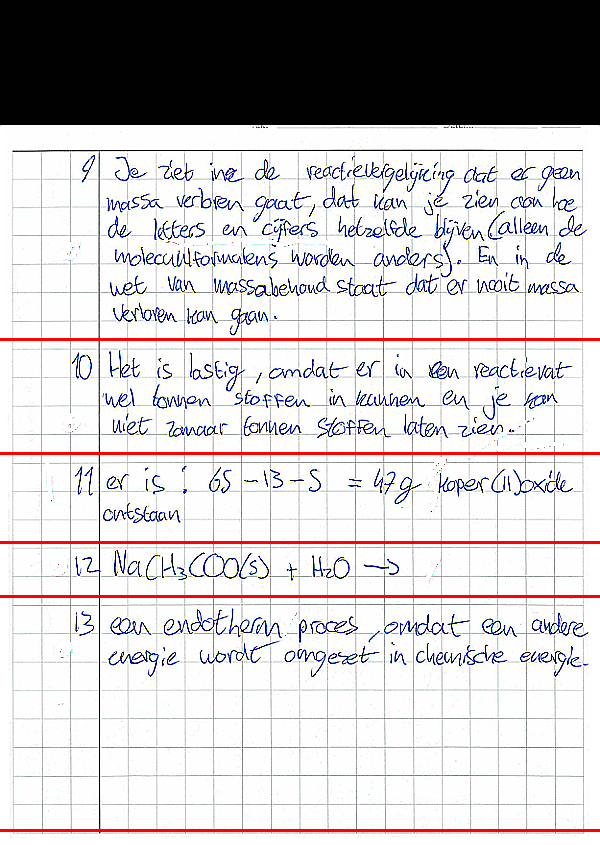 9 Je ziet in de reactievergelijking dat er geen
massa verloren gaat, dat kan je zien aan hoe
de letters en cijfers hetzelfde blijven (alleen de
worden anders). En in de
wet van massabehoud staat dat er nooit massa
verloren kan gaan.
10 Het is lastig, omdat er in een reactievat
wel tonnen stoffen in kunnen en je kan
niet zomaar tonnen stoffen laten zien.
11 er is : 65 - 13 - 5 = 47g koper(II)oxide
ontstaan
12 NaCH3COO(s) + H2O →
13 een endotherm proces, omdat een andere
energie wordt omgezet in chemische energie.